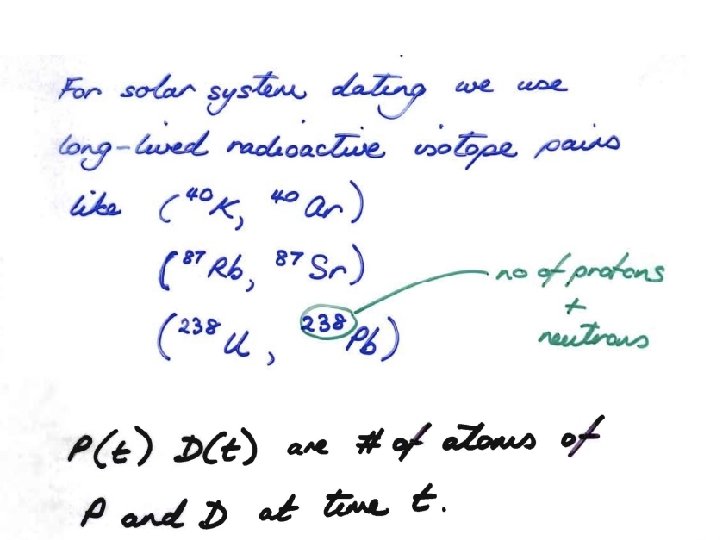 For solar system dating we use
long-lived radioactive isotope pairs
like (⁴⁰K, ⁴⁰Ar)
(⁸⁷Rb, ⁸⁷Sr)
no of protons
+
(²³⁸U, ²³⁸Pb)
neutrons
P(t) D(t) are # of atoms of
P and D at time t.